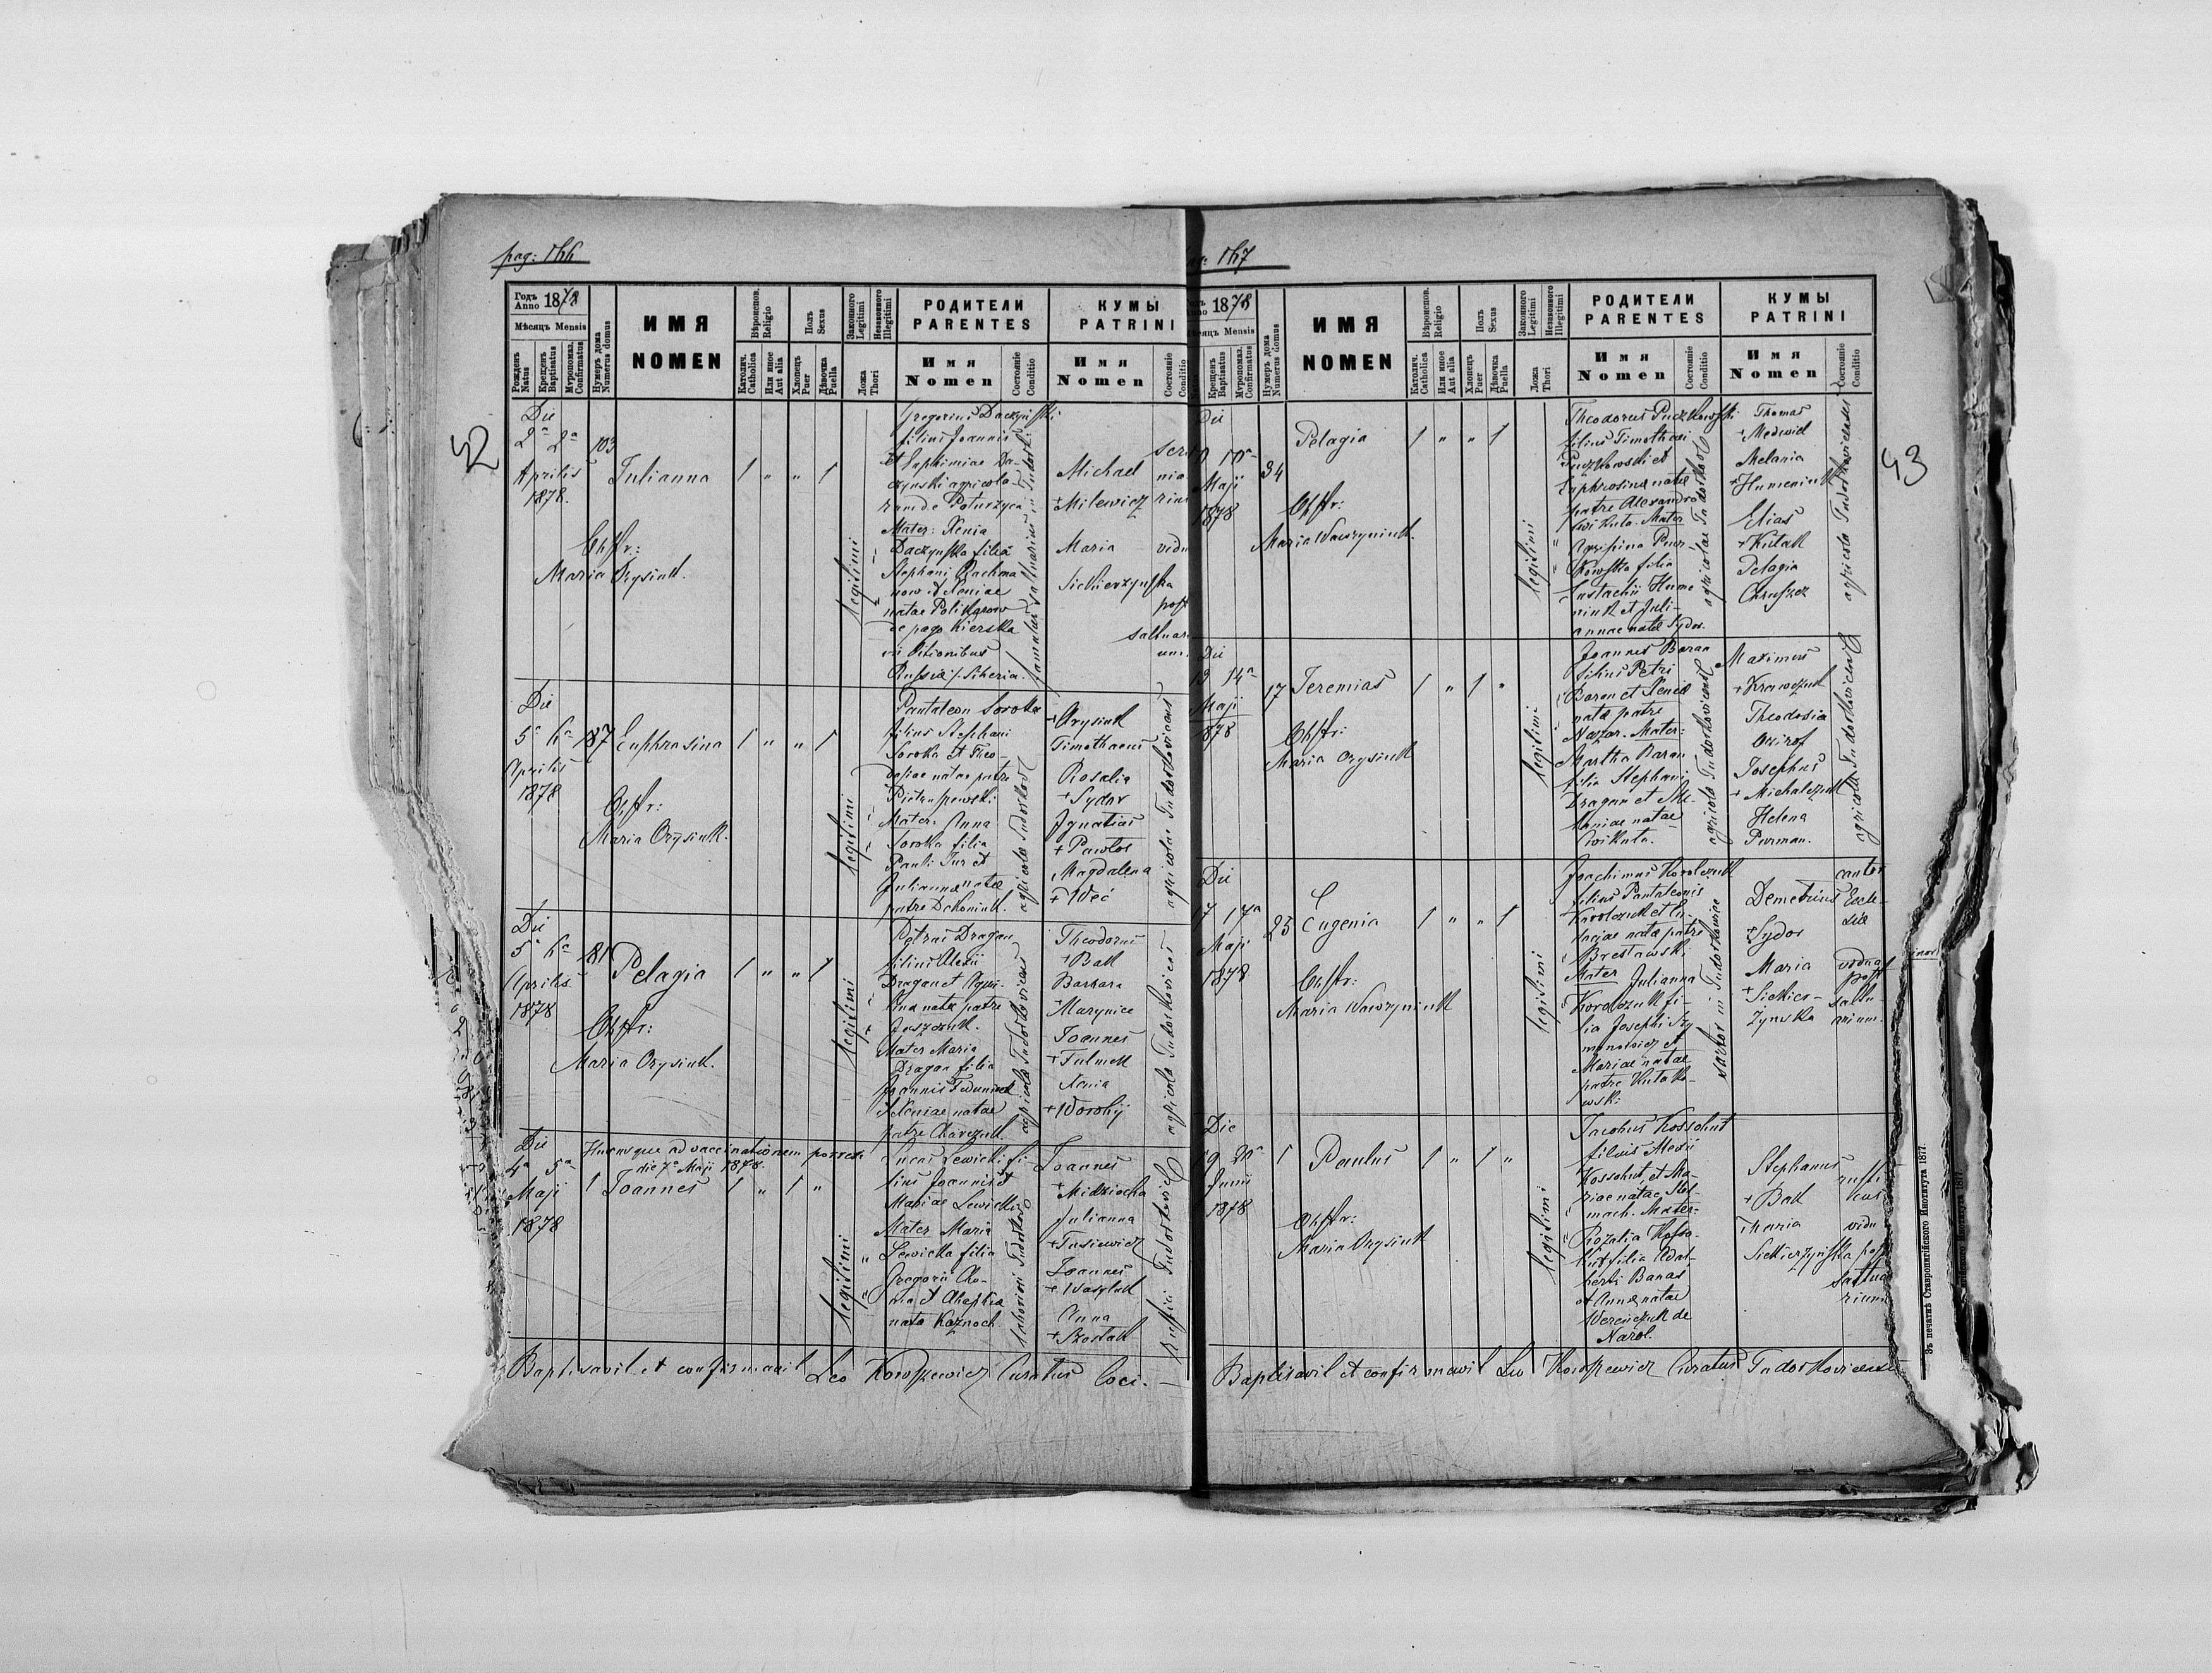 pag: 166
Годъ Anno 1878
Мѣсяцъ Mensis
Рожденъ Natus
Крещенъ Baptisatus
Мѵропомаз. Confirmatus
Нумеръ дома Numerus domus
ИМЯ
NOMEN
Вѣроиспов. Religio
Католич. Catholica
Или иное Aut alia
Полъ Sexus
Хлопецъ Puer
Дѣвочка Puella
Законного Legitimi
Незаконного Illegitimi
Ложа Thori
РОДИТЕЛИ
PARENTES
Имя
Nomen
Состояніе Conditio
КУМЫ
PATRINI
Имя
Nomen
Состояніе Conditio
52
Die
2ª 2ª 103
Aprilis
1878.
Julianna 1 " " 1
Obstr:
Maria Orysiuk.
legitimi
Gregorius Daczyński
filius Joannis
et Euphimiae Da-
czynski agricola-
rum de Poturzyca
Mater: Xenia
Daczynska filia
Stephani Rachma
now et Xeniae
natae Polikarow
de pago Kierska
in ditionibus
Russiae /: Siberia.
Michael
+ Milewicz
Maria vidua
Siekierzynska
post
saltuari
um.
Die
5ª 6ª 187
Aprilis
1878
Euphrasina 1 " " 1
Obstr:
Maria Orysiuk.
legitimi
Pantaleon Soroka
filius Stephani
Soroka et Theo-
dosiae natae patre
Pietruszewski
Mater: Anna
Soroka filia
Pauli Tur et
Juliannae natae
patre
agricola Tudorkov
+ Orysiuk
Timothaeus
Rosalia
+ Sydor
Ignatius
+ Pawlos
Magdalena
+ Weć
agricolae Tudorkovicenses
Die
5ª 6ª 181
Aprilis
1878
Pelagia 1 " " 1
Obstr:
Maria Orysiuk.
legitimi
Petrus Dragan
filius Alexii
Dragan et Agri-
pina nata patre
Juszczuk.
Mater Maria
Dragan filia
Joannis Feduniuk
et Xeniae natae
patre
agricola Tudorkovicens
Theodorus
+ Bak
Barbara
+ Marynice
Joannes
+ Fulmek
Xenia
+ Worohij
agricola Tudorkovicens
Hucusque ad vaccinationem porrexi
die 7ª Maji 1878.
Die
4ª 5ª
Maji
1878
1 Joannes 1 " 1 "
legitimi
Lucas Lewicki fi-
lius Joannis et
Mariae Lewicki
Mater Maria
Lewicka filia
Gregorii Cho-
ma et Ahaphia
nata Koznoch.
Joannes
+ Midziocha
Julianna
+ Tusiewicz
Joannes
+ Wasyluk
Anna
+ Szostak
Rustici Tudorkovic
Baptisavit et confirmavit Leo Koroszewicz Curatus loci. —
167
1878
Мѣсяцъ Mensis
Крещенъ Baptisatus
Мѵропомаз. Confirmatus
Нумеръ дома Numerus domus
ИМЯ
NOMEN
Вѣроиспов. Religio
Католич. Catholica
Или иное Aut alia
Полъ Sexus
Хлопецъ Puer
Дѣвочка Puella
Законного Legitimi
Незаконного Illegitimi
Ложа Thori
РОДИТЕЛИ
PARENTES
Имя
Nomen
Состояніе Conditio
КУМЫ
PATRINI
Имя
Nomen
Состояніе Conditio
43
Die
10ª 34
Maji
1878
Pelagia 1 " " 1
Obstr:
Maria Wawryniuk.
legitimi
Theodorus Puczkowski
filius Timothaei
Puczkowski et
Euphrosinae natae
patre Alexandro
Cwikuta. Mater
Agripina Pucz-
kowska filia
Eustachii Hume
niuk et Juli-
annae natae Sydor.
agricolae Tudorkov
Thomas
+ Medwid
Melania
+ Humeniuk
Elias
+ Kulak
Pelagia
Chruszcz
agricola Tudorkovicenses
Die
13 14ª
Maji
1878
17 Jeremias 1 " 1 "
Obstr:
Maria Orysiuk
legitimi
Joannes Baran
filius Petri
Baran et Xeniae
natae patre
Nazar. Mater:
Martha Baran
filia Stephani
Dragan et Me-
laniae natae
Cwikuta.
agricola Tudorkovicens
Maximus
+ Krawczuk
Theodosia
Onirof
Josephus
+ Michalczuk
Helena
Purman.
agricolae Tudorkovicens
Die
17 17ª
Maji
1878
25 Eugenia 1 " " 1
Obstr:
Maria Wawryniuk
legitimi
Joachimus Korolczuk
filius Pantaleonis
Korolczuk et Eu-
natae patre
Breslawski
Mater Julianna
Korolczuk fi-
lia Josephi Szy
manowicz et
Mariae natae
patre Kulako-
wski
sartor in Tudorkowice
Demetrius
+ Sydor
Maria
+ Siekier-
zynska
cantor
Eccle-
siae
vidua
post
saltu-
arium.
Die
19 20ª
Junii
1878
1 Paulus 1 " 1 "
Obstr:
Maria Orysiuk
legitimi
Jacobus Kossohut
filius Alexii
Kossohut, et Ma-
riae natae Stel-
mach. Mater:
Rozalia Kosso-
hut filia Adal-
berti Banas
et Annae natae
Wereńczuk de
Narol.
Stephanus
+ Bak
Maria
Siekierzynska
rusti
cus
vidu
post
saltua
rium
Baptisavit et confirmavit Leo Koroszewicz Curatus Tudorkovicensis
Зъ печатнѣ Ставропигійского Института 1877.